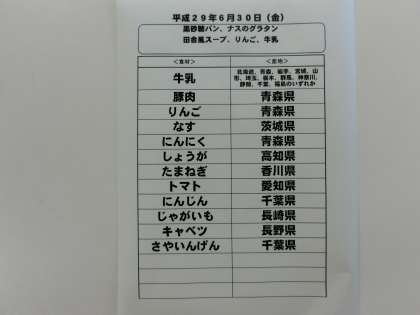 平成29年6月30日(金)
黒砂糖パン、ナスのグラタン
田舎風スープ、りんご、牛乳
<食材> <産地>
牛乳 北海道、青森、岩手、宮城、山
形、埼玉、栃木、群馬、神奈川、
静岡、千葉、福島のいずれか
豚肉 青森県
りんご 青森県
なす 茨城県
にんにく 青森県
しょうが 高知県
たまねぎ 香川県
トマト 愛知県
にんじん 千葉県
じゃがいも 長崎県
キャベツ 長野県
さやいんげん 千葉県